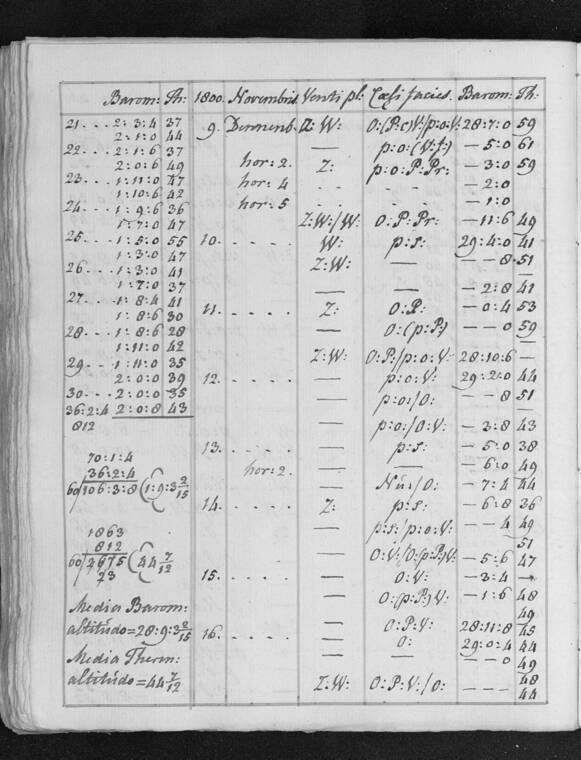 Barom: Th: 1800. Novembris Venti pl: Cœli facies. Barom: Th:
21 . . . 2: 3: 4 37
2: 1: 0 44
22 . . . 2: 1: 6 37
2: 0: 6 49
23 . . . 1: 11: 0 47
1: 10: 6 42
24 . . . 1: 9: 6 36
1: 7: 0 47
25 . . . 1: 5: 0 55
1: 3: 0 47
26 . . . 1: 3: 0 41
1: 7: 0 37
27 . . . 1: 8: 4 41
1: 8: 6 30
28 . . . 1: 8: 6 28
1: 11: 0 42
29 . . . 1: 11: 0 35
2: 0: 0 39
30 . . . 2: 0: 0 35
36: 2: 4 2: 0: 8 43
812
70: 1: 4
36: 2: 4
60 106: 3: 8 (1: 9: 3 2/15
1863
812
60 2675 (44 7/12
23
Media Barom:
altitudo = 28: 9: 3 2/15
Media Therm:
altitudo = 44 7/12
9. Z: W: O: (P: c) V: / p: o: V: 28: 7: 0 59
— p: o: (V: f:) — 5: 0 61
hor: 2. Z: p: o: P: Pr: — 3: 0 59
hor: 4 - - - — 2: 0
hor: 5 — 1: 0
Z: W: / W: O: P: Pr: — 11: 6 49
10. . . . . W: p: s: 29: 4: 0 41
Z: W: — — — 8 51
— — — 2: 8 41
11. . . . . Z: O: P: — 0: 4 53
— O: (p: P:) — — 0 59
Z: W: O: P: / p: o: V: 28: 10: 6 —
12. . . . . — p: o: V: 29: 2: 0 44
— p: o: / O: — — 8 51
— p: o: / O: V: — 3: 8 43
13. . . . . — p: s: — 5: 0 38
hor: 2. — — — 6: 0 49
— Nu: / O: — 7: 4 44
14. . . . . Z: p: s: — 6: 8 36
— p: s: / p: o: V: — — 4 49
51
— O: V: / O: (p: P:) V: — 5: 6 47
15. . . . . — O: V: — 3: 4 —
— O: (p: P:) V: — 1: 6 48
49
— O: P: V: 28: 11: 8 45
16. . . . . — O: 29: 0: 4 44
— — — — 0 49
48
Z: W: O: P: V: / O: — — — 44